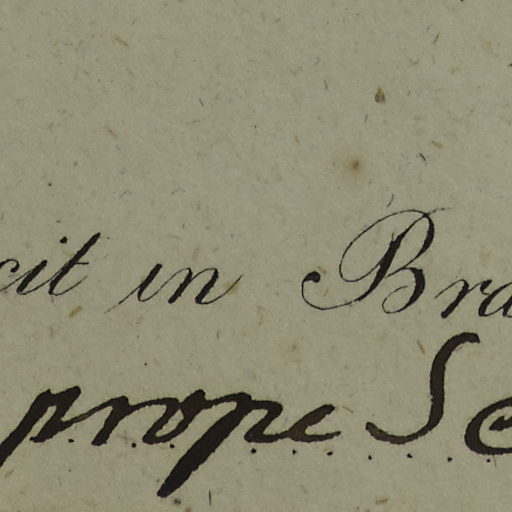 cit in Bra
prope Se